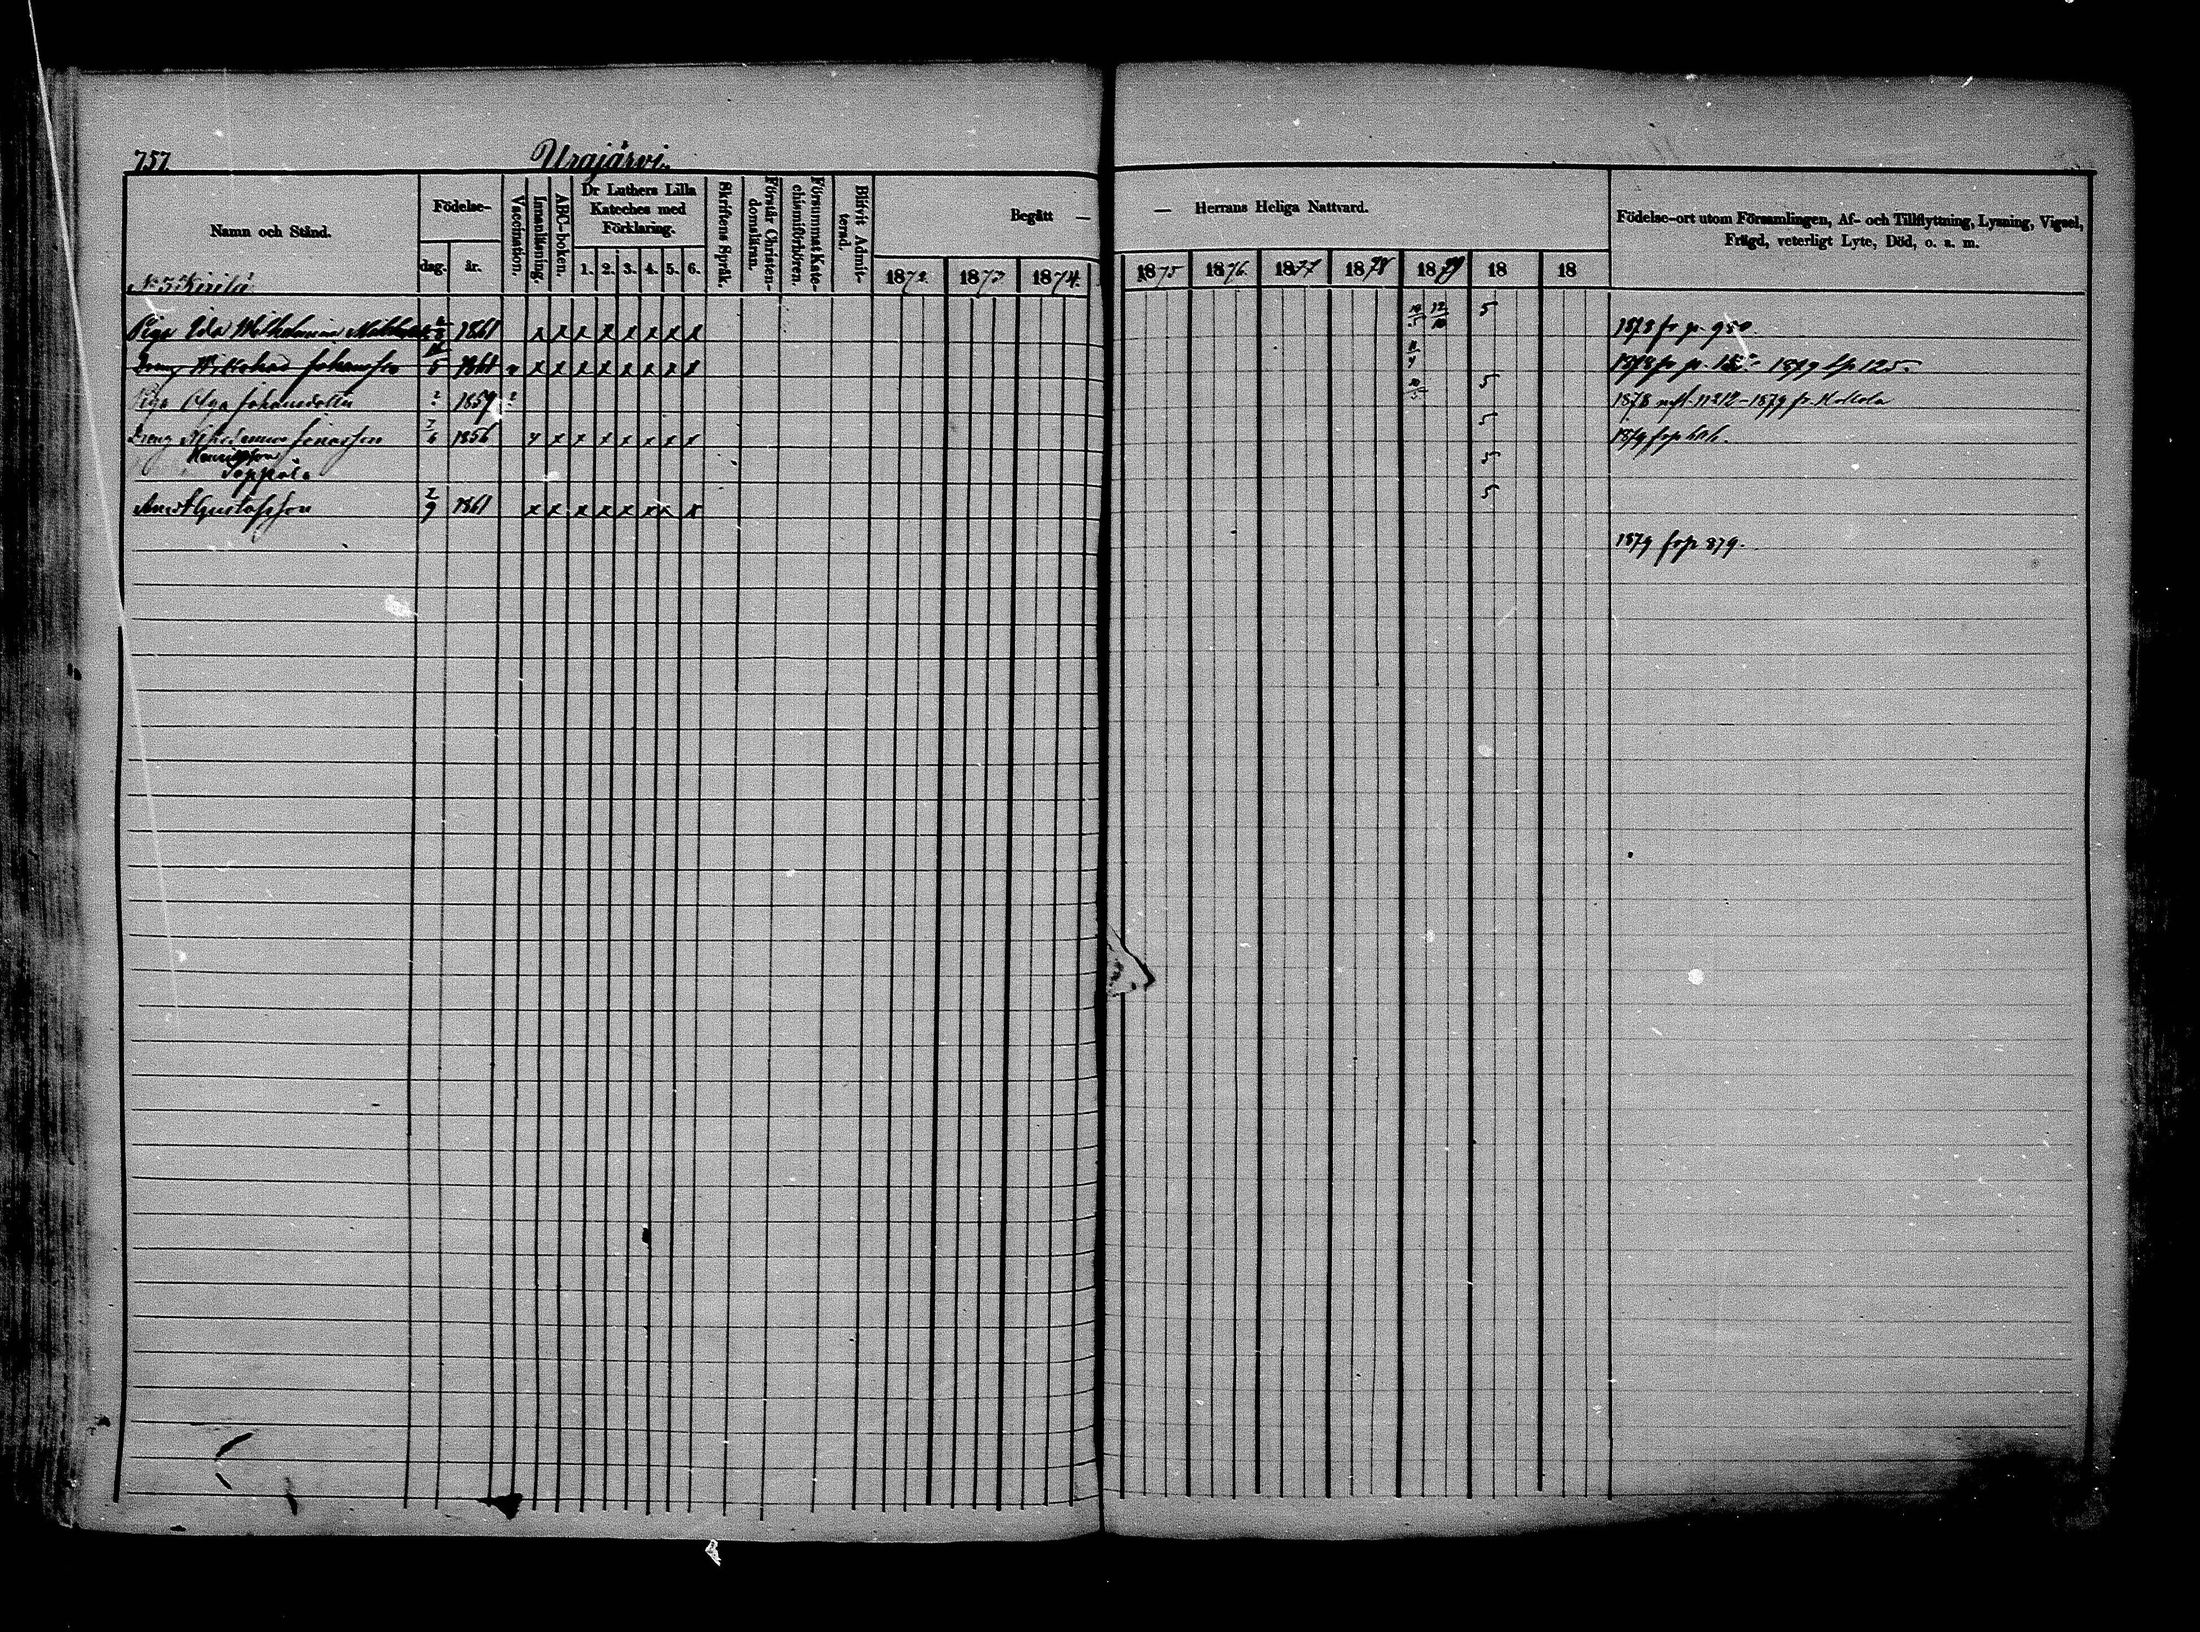 757.
Urajärvi.
Namn och Stånd.
Födelse-
dag. år.
Vaccination.
Innanläsning.
ABC-boken.
Dr Luthers Lilla
Kateches med
Förklaring.
1. 2. 3. 4. 5. 6.
Skriftens Språk.
Förstår Christen-
domsläran.
Försummat Kate-
chismiförhören.
Blifvit Admit-
terad.
Begått —
— Herrans Heliga Nattvard.
1872. 1873 1874. 1875 1876. 1877 1878 1879 18 18
Födelse-ort utom Församlingen, Af- och Tillflyttning, Lysning, Vigsel,
Frägd, veterligt Lyte, Död, o. s. m.
Piga Ida Wilhelmina 1861 x x x x x x x x 5 1878 fr p. 950.
Dreng Johansson 1861 v x x x x x x x x 1878 fr p. 1879 t p 125.
Piga Olga Johansdotter ? 1859 ? 5 1878 1879 fr. Hollola
Dreng 7/6 1856 x x x x x x x x 5 1879 frp
Henriksson
Seppälä 5
Gustafsson 2/9 1861 x x x x x x x x 5
1879 frp 879.